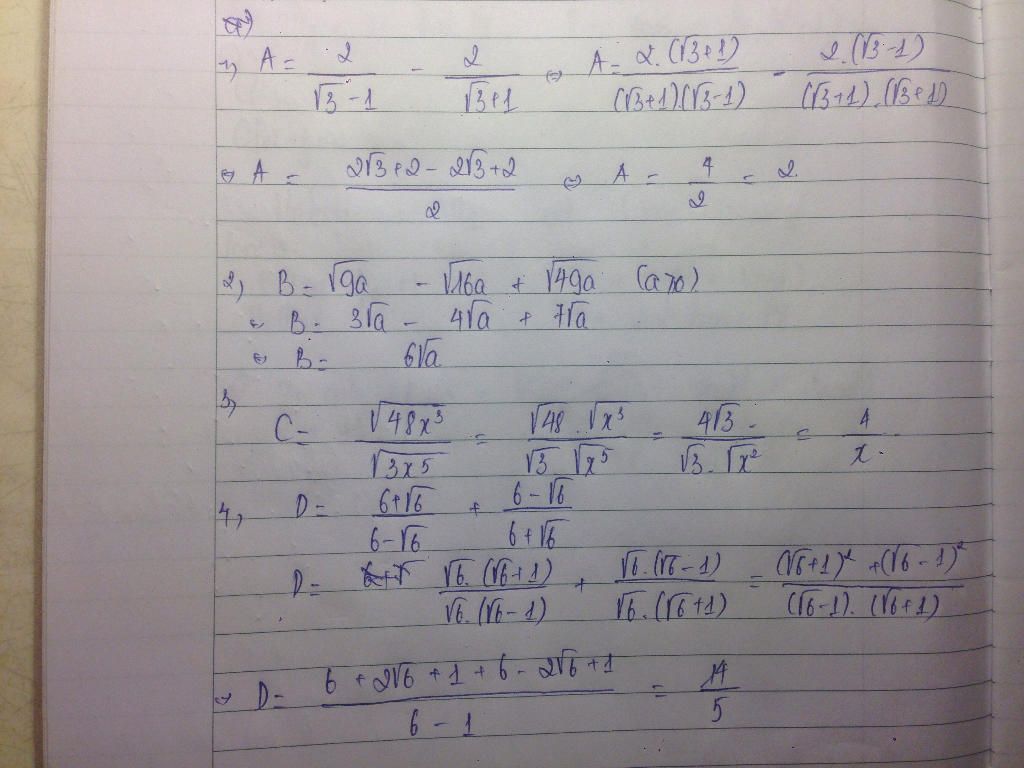 1) A = 2/(√3 - 1) - 2/(√3+1) ⇔ A = 2.(√3+1)/((√3+1)(√3-1)) - 2.(√3-1)/((√3+1).(√3+1))
⇔ A = (2√3+2 - 2√3+2)/2 ⇔ A = 4/2 = 2.
2) B = √9a - √16a + √49a (a>0)
⇔ B = 3√a - 4√a + 7√a
⇔ B = 6√a
3) C = √48x³/√3x⁵ = √48 . √x³/√3 . √x⁵ = 4√3 ./√3 . √x² = 4/x.
4) D = (6+√6)/(6-√6) + (6-√6)/(6+√6)
D = √6.(√6+1)/√6.(√6-1) + √6.(√6-1)/√6.(√6+1) = ((√6+1)²+(√6-1)²)/((√6-1).(√6+1))
⇔ D = (6+2√6+1+6-2√6+1)/(6-1) = 14/5